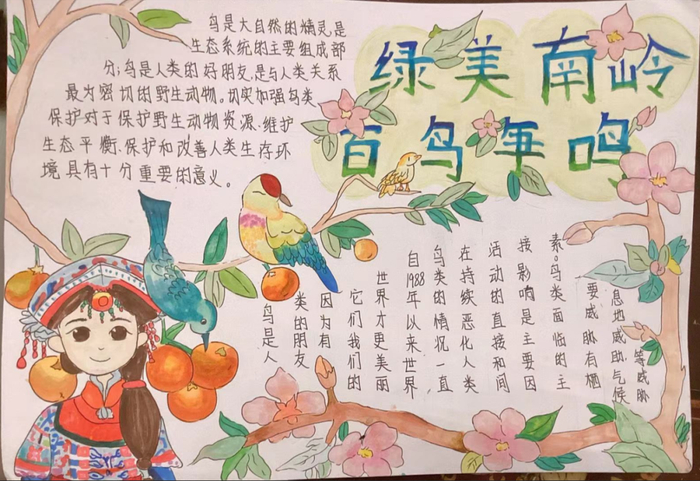 绿美南岭
百鸟争鸣
鸟是大自然的精灵,是
生态系统的主要组成部
分,鸟是人类的好朋友,是与人类关系
最为密切的野生动物。切实加强鸟类
保护对于保护野生动物资源、维护
生态平衡、保护和改善人类生存环
境具有十分重要的意义。
鸟是人
类的朋友
因为有
它们我们的
世界才更美丽
自1988年以来世界
鸟类的情况一直
在持续恶化人类
活动的直接和间
接影响是主要因
素。鸟类面临的主
要威胁有栖
息地威胁气候
等威胁